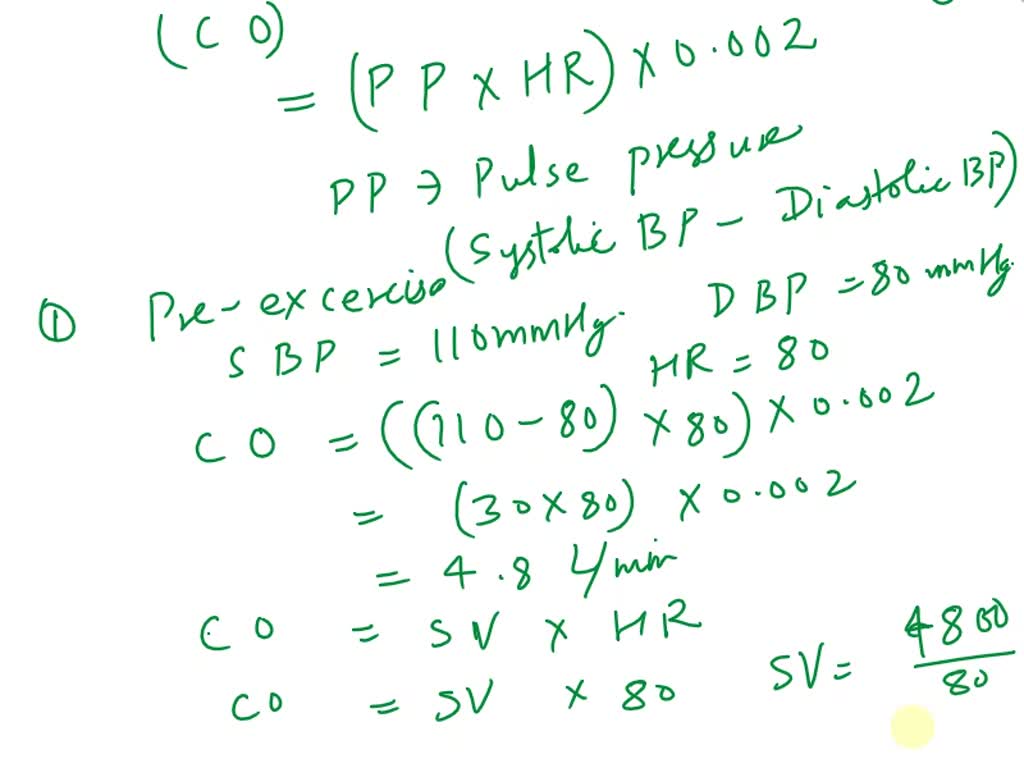 (CO)
= (PP X HR) X 0.002
PP → Pulse pressure
(Systolic BP - Diastolic BP)
① Pre-excercise
SBP = 110mmHg. DBP = 80 mmHg.
HR = 80
CO = ((110-80) X 80) X 0.002
= (30 X 80) X 0.002
= 4.8 L/min
CO = SV X HR
CO = SV X 80 SV = 4800/80